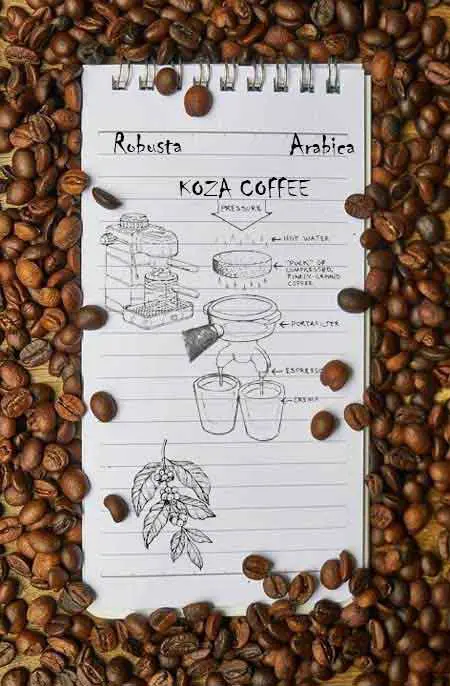 Robusta Arabica
KOZA COFFEE
PRESSURE
HOT WATER
"PUCK" OF
COMPRESSED,
FINELY-GROUND
COFFEE
PORTAFILTER
ESPRESSO
CREMA